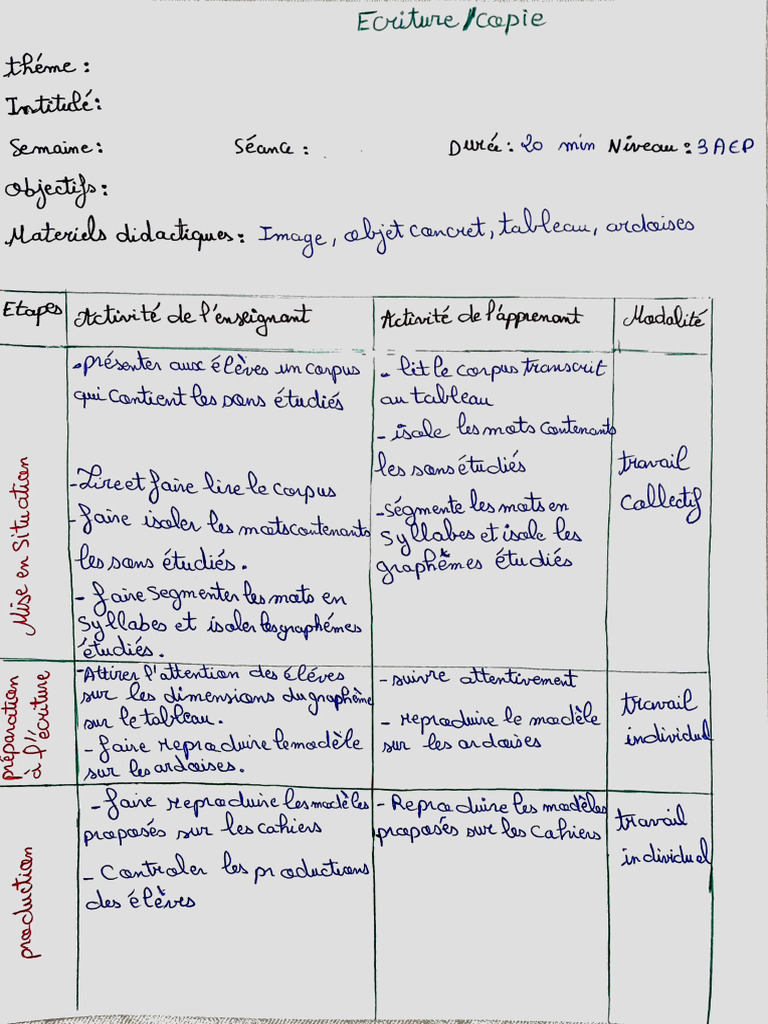 Ecriture/copie
théme :
Institulé :
Semaine : Séance : Durée : 20 min Niveau : 3AEP
Objectifs :
Materiels didactiques : Image, objet concret, tableau, ardoises
Etapes Activité de l'enseignant Activité de l'apprenant Modalité
Mise en Situation
- présenter aux élèves un corpus
qui contient les sons étudiés
- Lire et faire lire le corpus
- faire isoler les mots contenants
les sons étudiés.
- faire segmenter les mots en
syllabes et isoler les graphémes
étudiés.
- lit le corpus transcrit
au tableau
- isole les mots contenants
les sons étudiés
- Ségmente les mots en
syllabes et isole les
graphèmes étudiés
travail
collectif
préparation
à l'écriture
- Attirer l'attention des éléves
sur les dimensions du graphème
sur le tableau.
- faire reproduire le modèle
sur les ardoises.
- suivre attentivement
- reproduire le modèle
sur les ardoises
travail
individuel
production
- faire reproduire les modèles
proposés sur les cahiers
- Controler les productions
des élèves
- Reproduire les modèles
proposés sur les Cahiers
travail
individuel